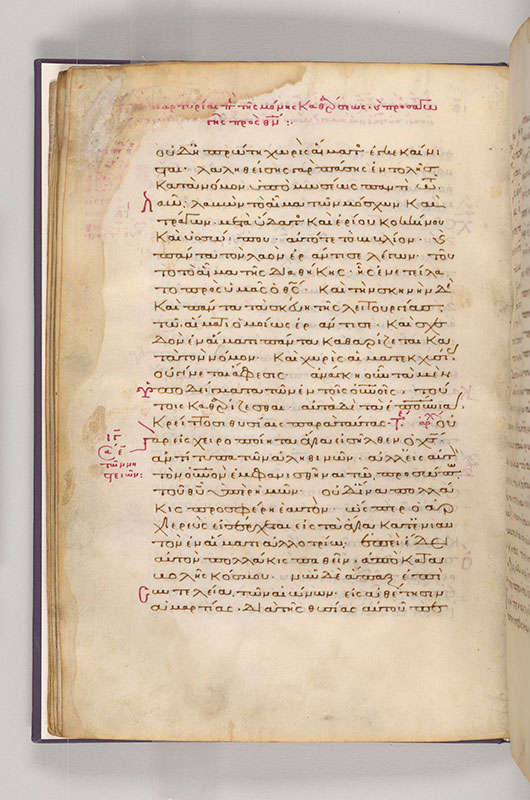 μαρτυρίαι π τῆς μόνης καθάρσεως· ἡ προσαγω
γῆς πρὸς θν:
οὐδ' ἡ πρώτη χωρὶς αἵματ ἐγκεκαίνι
σται· λαληθείσης γὰρ πάσης ἐντολῆς
κατὰ νόμον ὑπὸ μωϋσέως παντὶ τῶ
λαῶ· λαβὼν τὸ αἷμα τῶν μόσχων καὶ
τράγων· μετὰ ὕδατος καὶ ἐρίου κοκκίνου
καὶ ὑσσώπου· αὐτό τε τὸ βιβλίον· καὶ
πάντα τὸν λαὸν ἐράντισε λέγων· τοῦ
το τὸ αἷμα τῆς διαθήκης· ἧς ἐνετείλα
το πρὸς ὑμᾶς ὁ θς· καὶ τὴν σκηνὴν δὲ
καὶ πάντα τὰ σκεύη τῆς λειτουργίας·
τῶ αἵματι ὁμοίως ἐράντισε· καὶ σχε
δὸν ἐν αἵματι πάντα καθαρίζεται κα
τὰ τὸν νόμον· καὶ χωρὶς αἱματεκχυσί
οὐ γίνεται ἄφεσις· ἀνάγκη οὖν τὰ μὲν
ὑποδείγματα τῶν ἐν τοῖς οὐνοῖς· τού
τοις καθαρίζεσθαι· αὐτὰ δὲ τὰ ἐπουράνια
κρείττοσι θυσίαις παρὰ ταύτας· τε αρχ οὐ
γὰρ εἰς χειροποίητα ἅγια εἰσῆλθεν ὁ χς
ἀντίτυπα τῶν ἀληθινῶν· ἀλλ' εἰς αὐτὸν
τὸν οὐνον ἐμφανισθῆναι τῶ προσώπω
τοῦ θυ ὑπὲρ ἡμῶν· οὐδ' ἵνα πολλά
κις προσφέρη ἑαυτόν· ὥσπερ ὁ ἀρ
χιερεὺς εἰσέρχεται εἰς τὰ ἅγια κατ' ἐνιαυ
τὸν ἐν αἵματι ἀλλοτρίω· ἐπεὶ ἔδει
αὐτὸν πολλάκις παθεῖν· ἀπὸ κατα
βολῆς κόσμου· νῦν δὲ ἅπαξ ἐπὶ
συντελεία τῶν αἰώνων· εἰς ἀθέτησιν
ἁμαρτίας· διὰ τῆς θυσίας αὐτοῦ